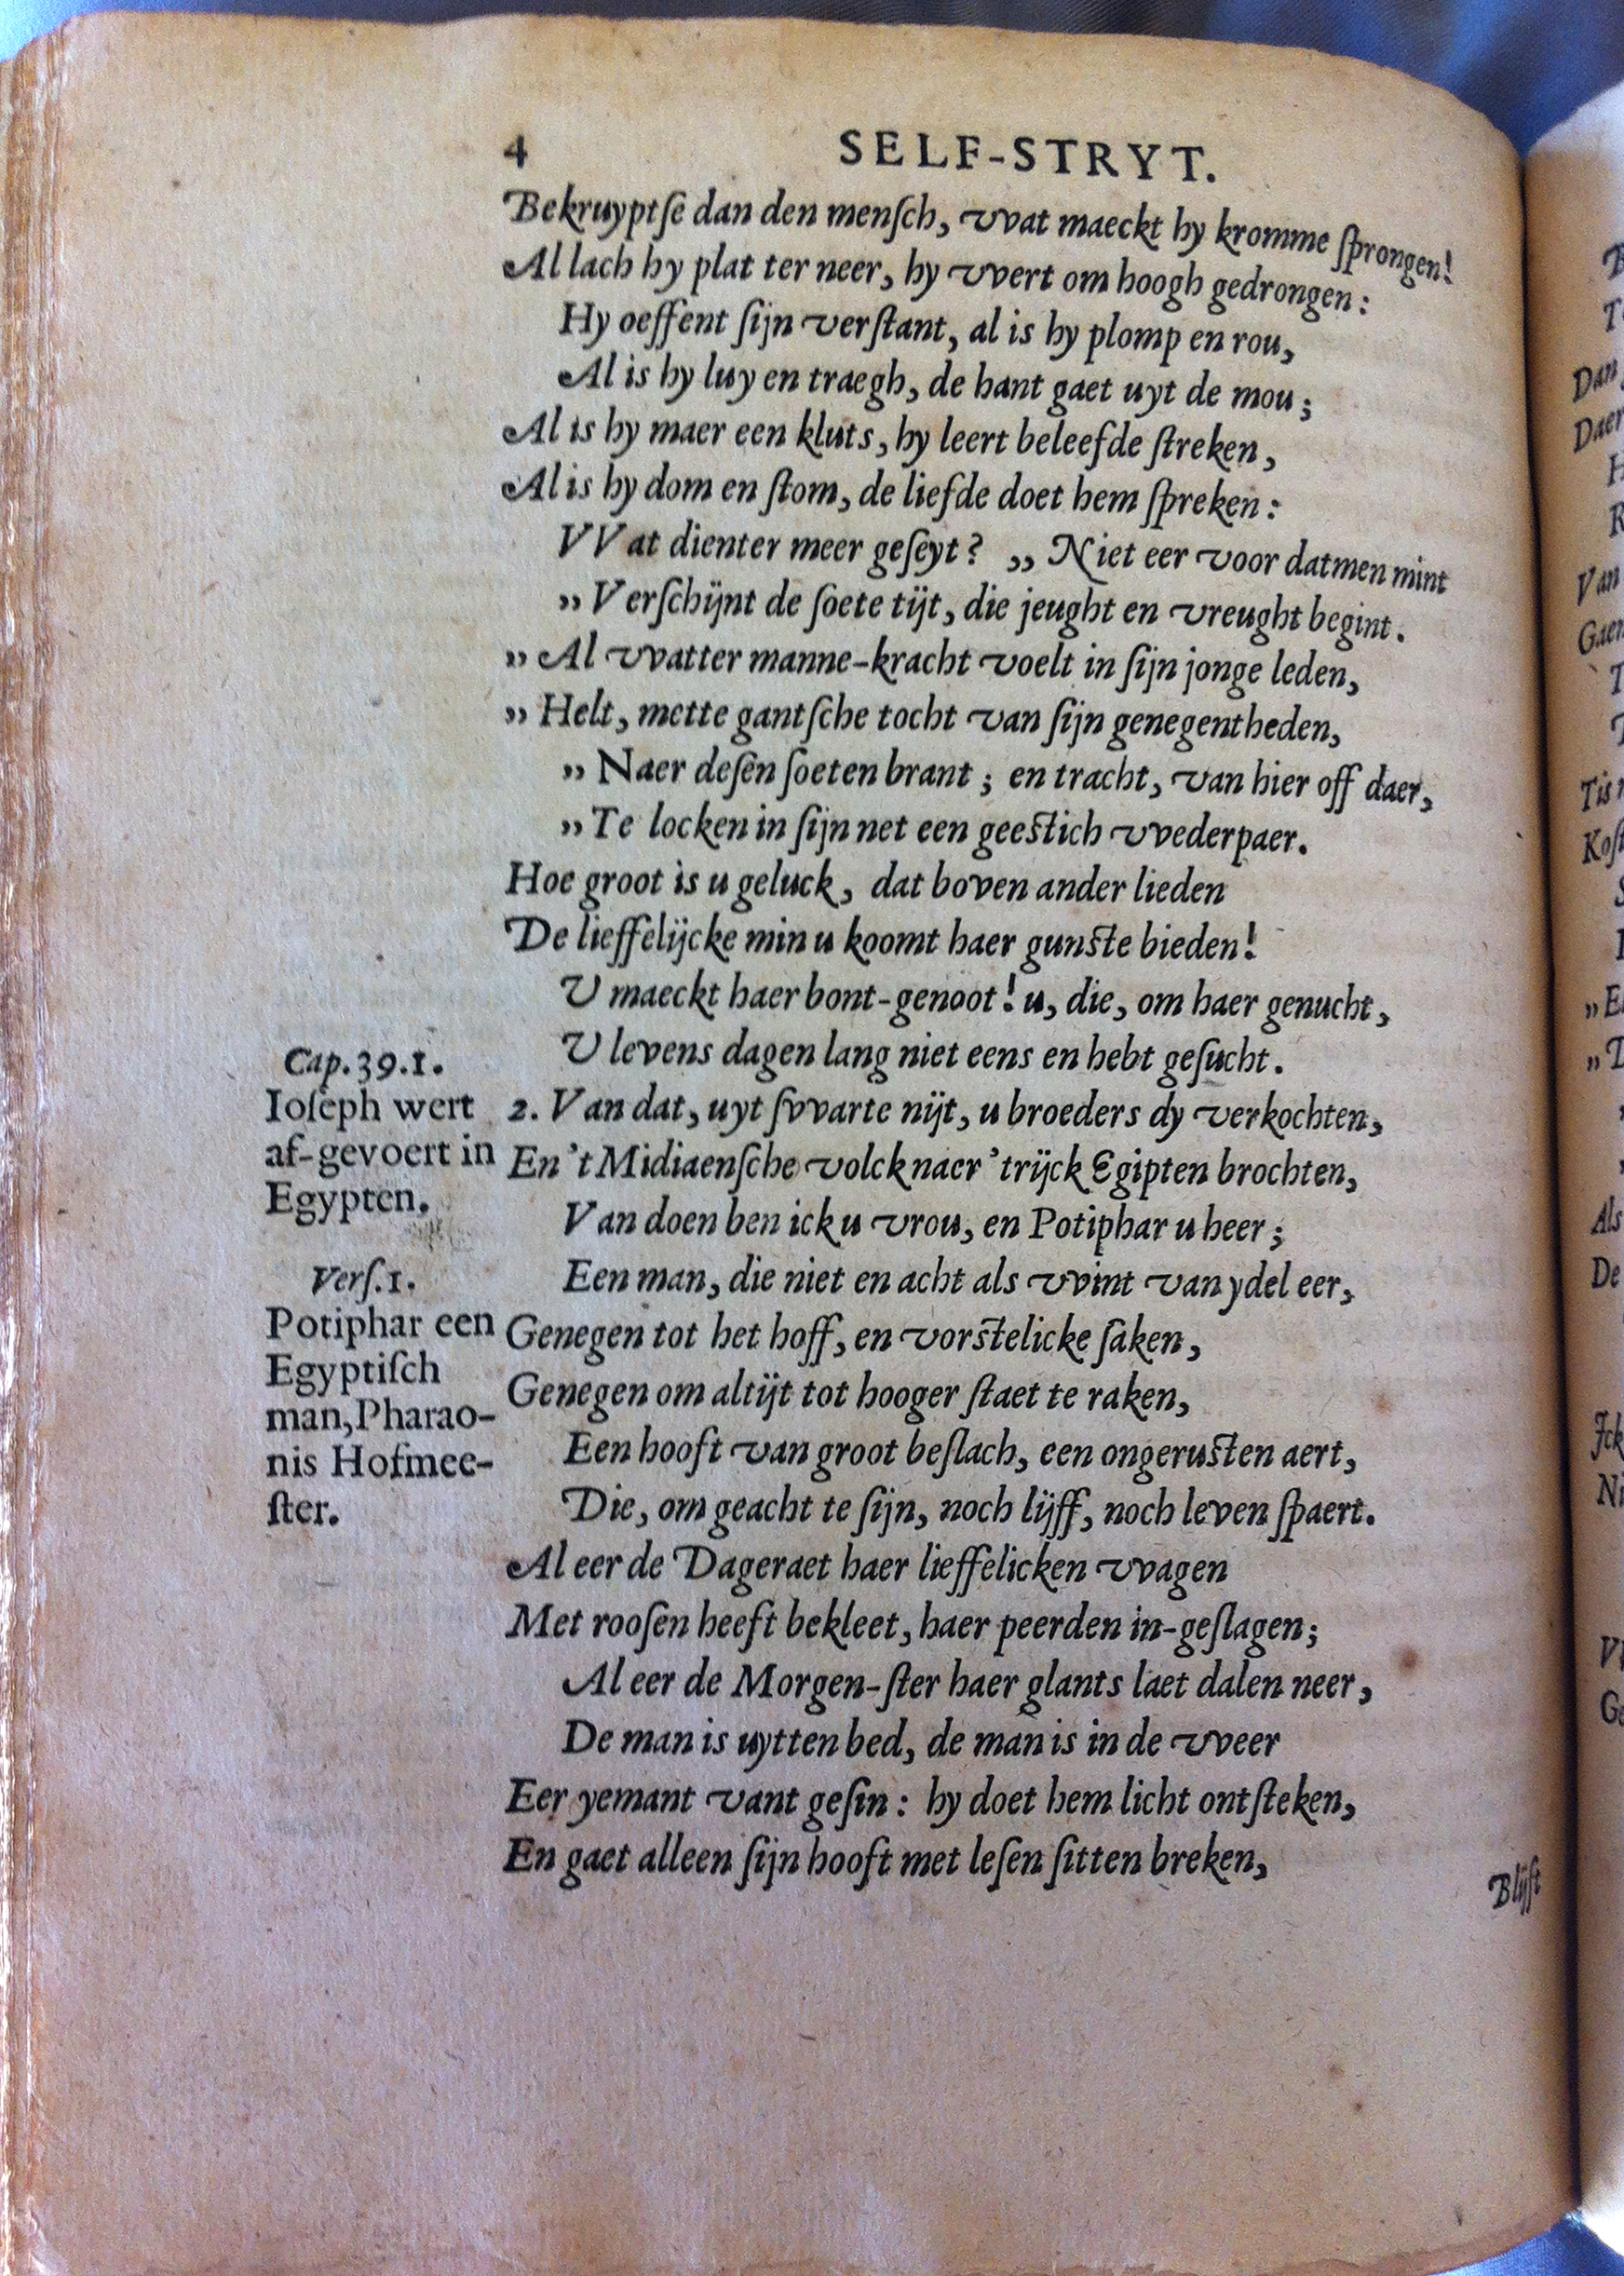 4 SELF-STRYT.
Bekruyptſe dan den menſch, vvat maeckt hy kromme ſprongen!
Al lach hy plat ter neer, hy vvert om hoogh gedrongen:
Hy oeffent ſijn verſtant, al is hy plomp en rou,
Al is hy luy en traegh, de hant gaet uyt de mou;
Al is hy maer een kluts, hy leert beleefde ſtreken,
Al is hy dom en ſtom, de liefde doet hem ſpreken:
VVat dienter meer geſeyt? „ Niet eer voor datmen mint
„ Verſchijnt de ſoete tijt, die jeught en vreught begint.
„ Al vvatter manne-kracht voelt in ſijn jonge leden,
„ Helt, mette gantſche tocht van ſijn genegentheden,
„ Naer deſen ſoeten brant; en tracht, van hier off daer,
„ Te locken in ſijn net een geeſtich vvederpaer.
Hoe groot is u geluck, dat boven ander lieden
De lieffelijcke min u koomt haer gunſte bieden!
U maeckt haer bont-genoot! u, die, om haer genucht,
U levens dagen lang niet eens en hebt geſucht.
Cap. 39. 1.
Ioſeph wert
af-gevoert in
Egypten.
2. Van dat, uyt ſvvarte nijt, u broeders dy verkochten,
En 't Midiaenſche volck naer 'trijck Egipten brochten,
Van doen ben ick u vrou, en Potiphar u heer;
Een man, die niet en acht als vvint van ydel eer,
Verſ. 1.
Potiphar een
Egyptiſch
man, Pharao-
nis Hofmee-
ſter.
Genegen tot het hoff, en vorſtelicke ſaken,
Genegen om altijt tot hooger ſtaet te raken,
Een hooft van groot beſlach, een ongeruſten aert,
Die, om geacht te ſijn, noch lijff, noch leven ſpaert.
Al eer de Dageraet haer lieffelicken vvagen
Met rooſen heeft bekleet, haer peerden in-geſlagen;
Al eer de Morgen-ſter haer glants laet dalen neer,
De man is uytten bed, de man is in de vveer
Eer yemant vant geſin: hy doet hem licht ontſteken,
En gaet alleen ſijn hooft met leſen ſitten breken,
Blijft